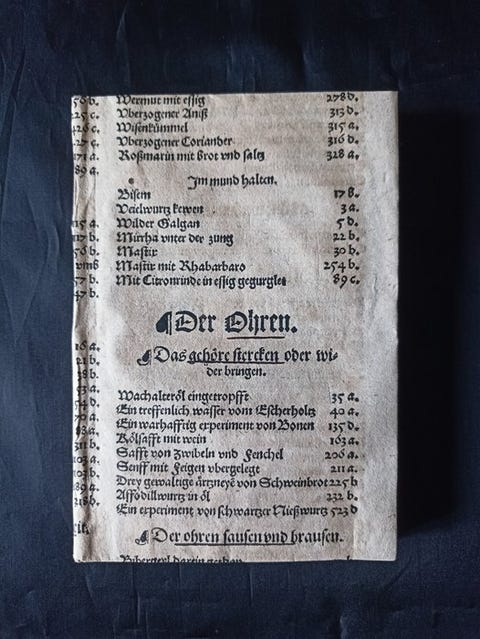 Wermut mit essig 278 d.
Vberzogener Aniß 313 d.
Wisenkümmel 315 a.
Vberzogener Coriander 316 d.
Roßmarin mit brot vnd saltz 328 a.
Im mund halten.
Bisem 17 b.
Veielwurtz kewen 3 a.
Wilder Galgan 5 d.
Mirrha vnter der zung 22 b.
Mastix 30 b.
Mastix mit Rhabarbaro 254 b.
Mit Citronrinde in essig gegurglet 89 c.
Der Ohren.
Das gehöre stercken oder wi-
der bringen.
Wachalteröl eingetropfft 35 a.
Ein treffenlich wasser vom Escherholtz 40 a.
Ein warhafftig experiment von Bonen 135 d.
Kölsafft mit wein 163 a.
Safft von Zwibeln vnd Fenchel 206 a.
Senff mit Feigen vbergelegt 211 a.
Drey gewaltige ärtzneyē von Schweinbrot 225 b
Affodillwurtz in öl 232 b.
Ein experiment von schwartzer Nießwurtz 523 d
Der ohren sausen vnd brausen.